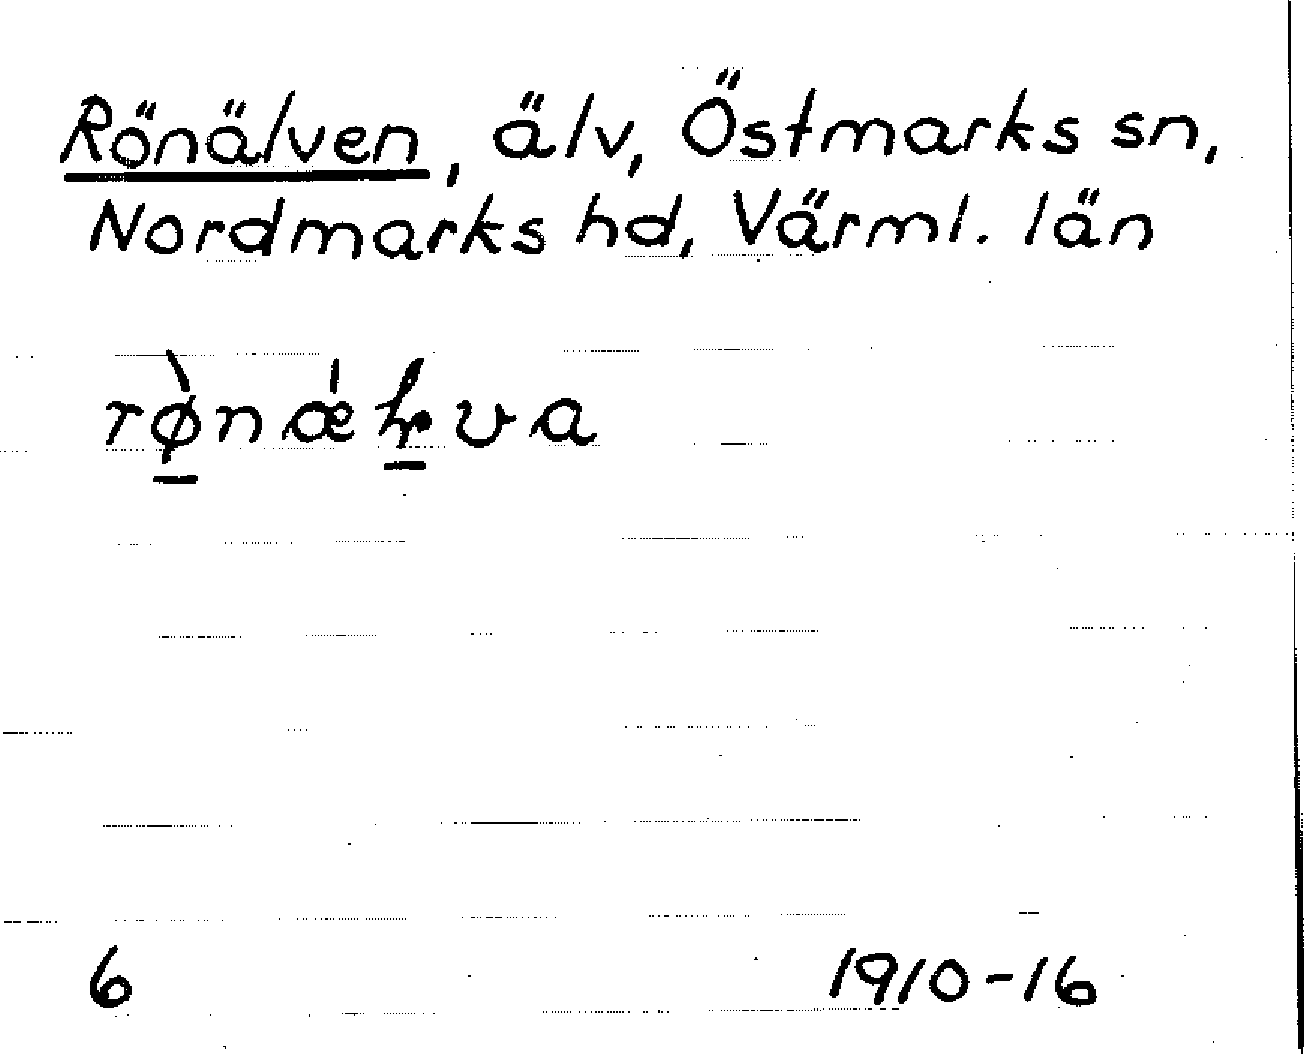 Rönälven, älv, Östmarks sn,
Nordmarks hd, Värml. län
6 1910-16